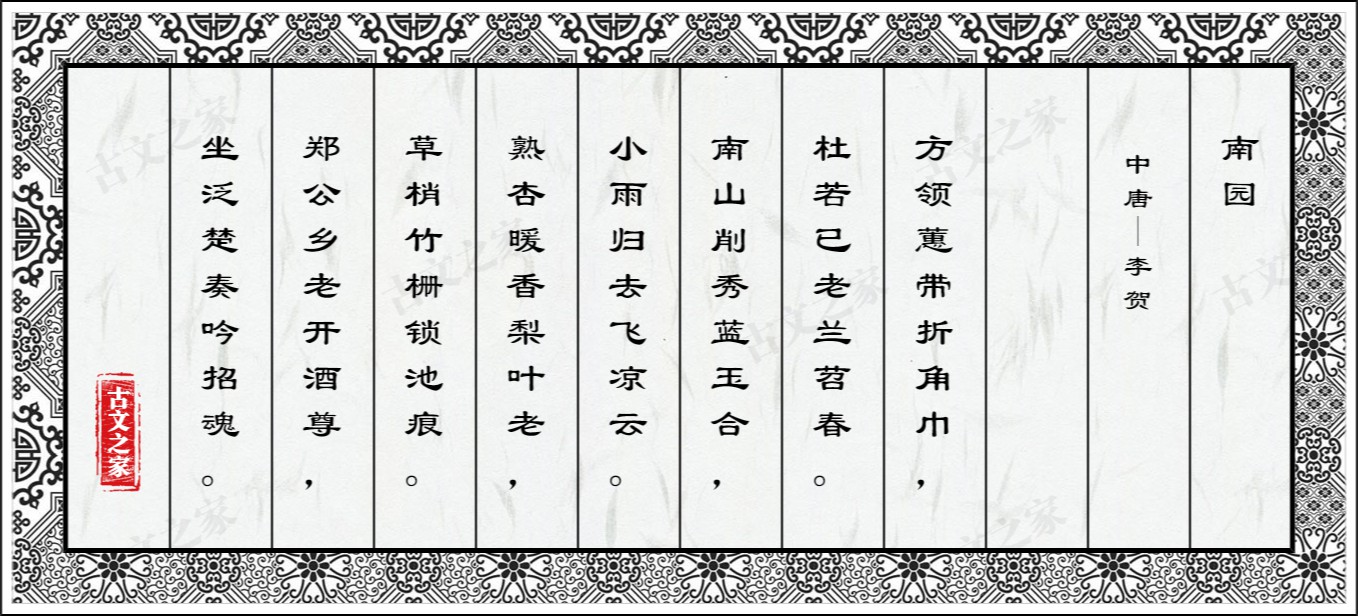 南园
中唐——李贺
方领蕙带折角巾，
杜若已老兰苕春。
南山削秀蓝玉合，
小雨归去飞凉云。
熟杏暖香梨叶老，
草梢竹栅锁池痕。
郑公乡老开酒尊，
坐泛楚奏吟招魂。
古文之家